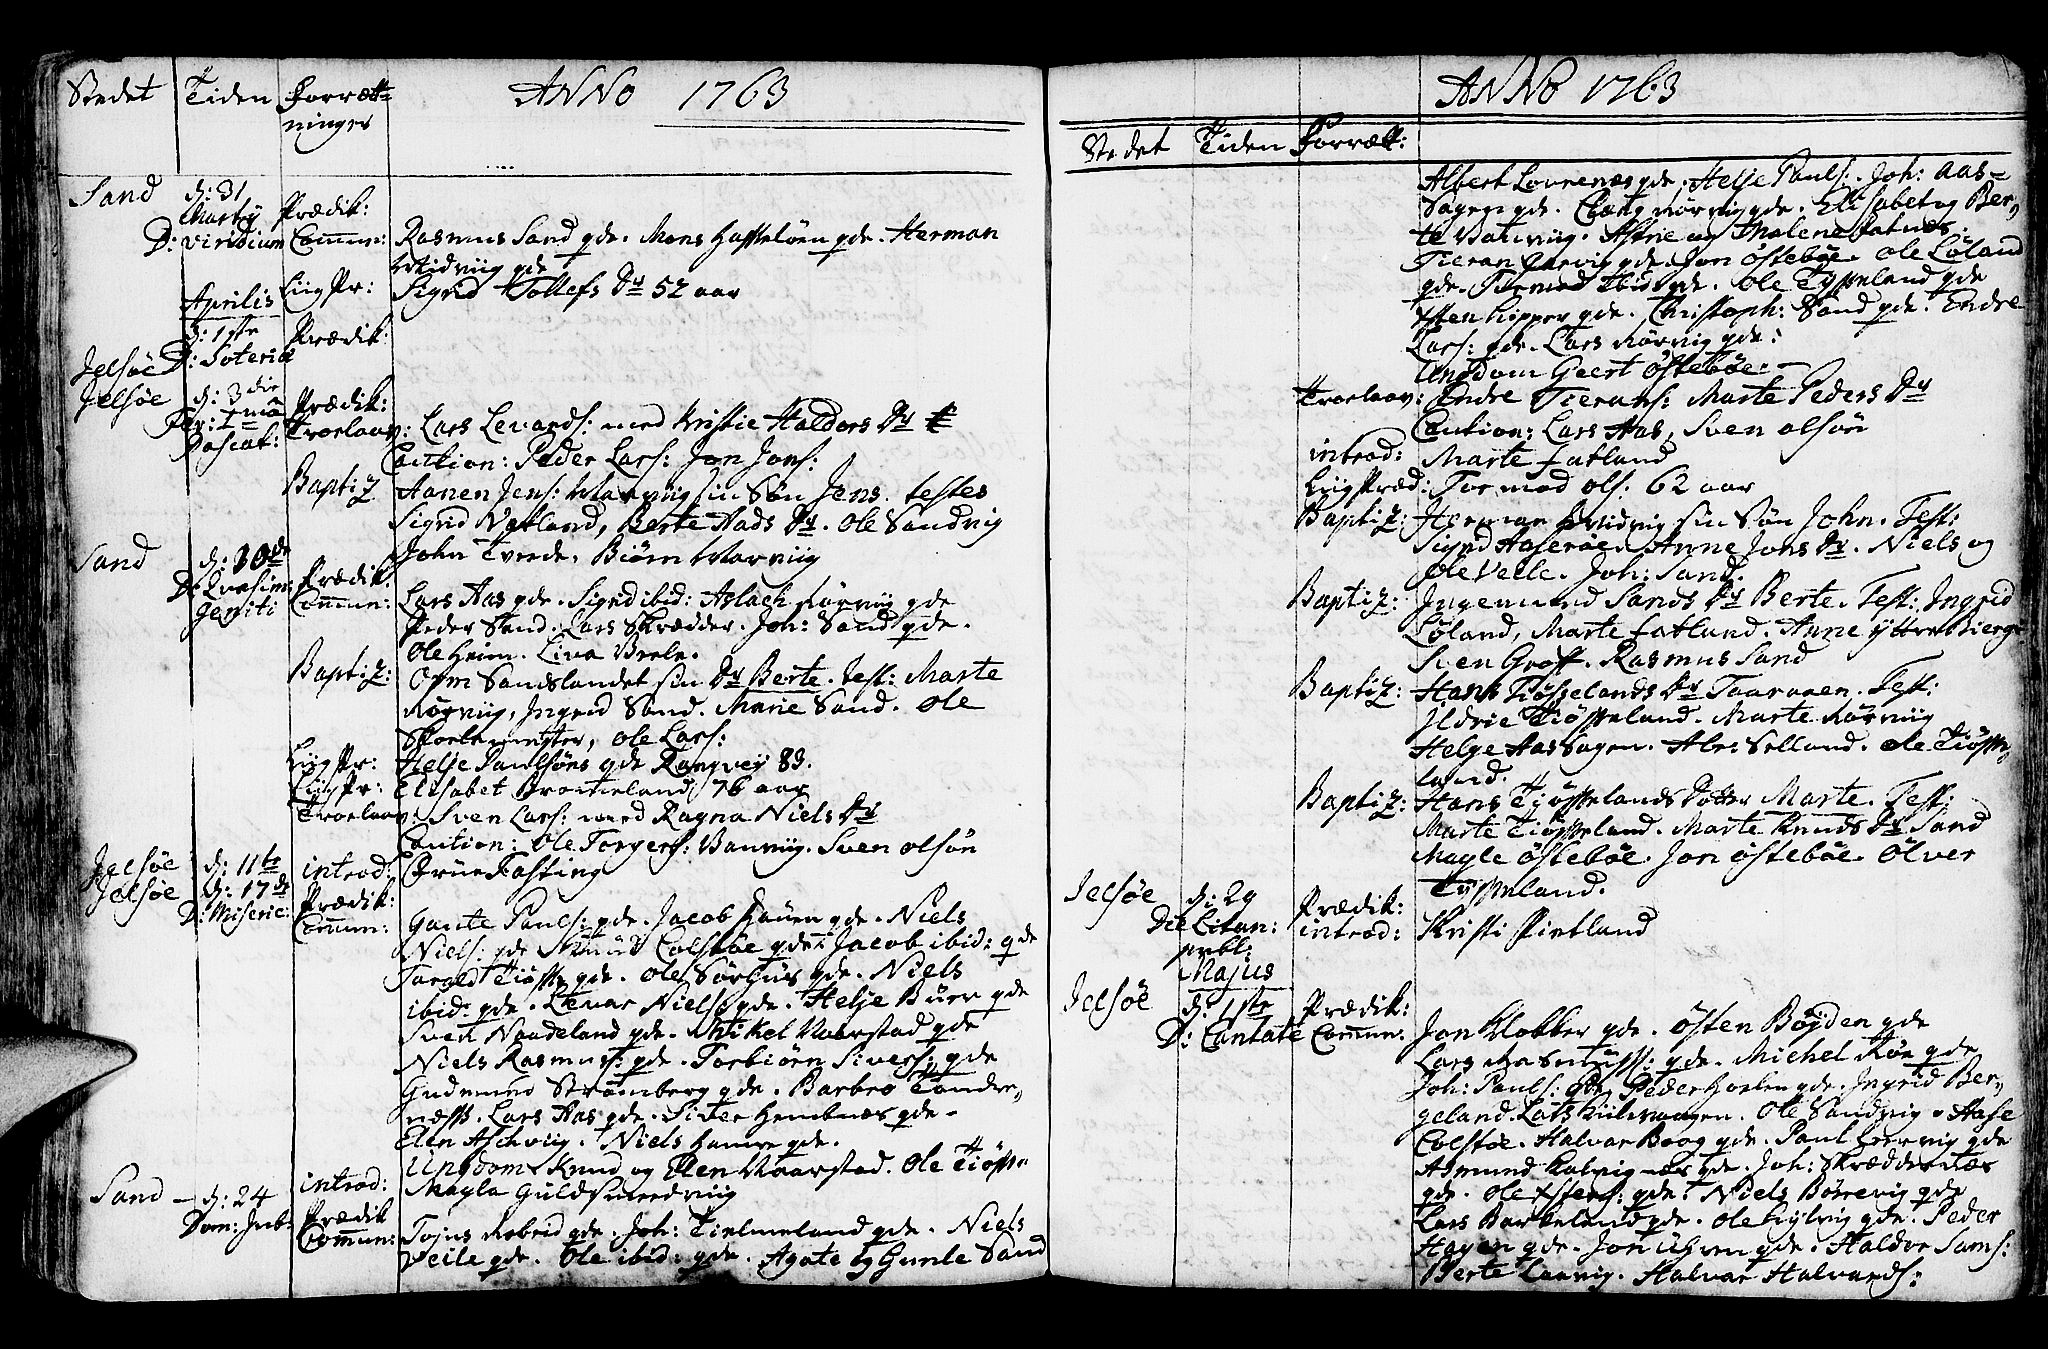 Stedet Tiden Forræt-
ninger
ANNO 1763
Sand d: 31
Martij Prædik:
D: viridium Comun: Rasmus Sand gde. Mons Hatteløen gde. Herman
Hidviig gde
Aprilis Liig Pr: Sigrid Tollefs Dr 52 aar
d: 1ste Prædik:
Jelsøe D: Soteriæ
Jelsøe d: 3die Prædik:
Fer: I ma
Pascat: Troelaav: Lars Levards: med Kristie Haldors Dr
Caution: Peder Lars: Jon Jons:
Baptiz Aanen Jens: Warviig sin Søn Jens. testes
Sigrid Vatland, Berte Aads Dr. Ole Sandvig
John Tverde, Biørn Warviig
Sand d: 10de
D: Qvasim: Prædik.
geniti Comun: Lars Aas gde. Sigrid ibid: Aslach Rørviig gde
Peder Sand. Lars Skrædder. Joh: Sand gde.
Ole Heim. Liva
Baptiz: Orm Sandslandet sin Dr Berte. test: Marte
Rørviig, Ingrid Sand. Marie Sand. Ole
Skoelemester, Ole Lars:
Liig Pr: Helje Paulsøns gde Rangvey 83.
Liig Pr: Elisabet Bratteland 76 aar
Troelaav: Sven Lars: med Ragna Niels Dr
Caution: Ole Torgers: Vanviig. Sven Olsøn
Jelsøe d: 11te introd: Brüe Fasting
Jelsøe d: 17de Prædik:
D: Miseric: Comun: Gaute Pauls: gde. Jacob Hauen gde. Niels
Niels: gde Colstøe gde. Jacob ibid: gde
Tarald Tiøst: gde. Ole Sørhus gde. Niels
ibid: gde. Levar Niels: gde. Helje Buer gde
Sven Naadeland gde. Mikel Vaarstad gde
Niels Rasmus: gde. Torbiørn Sivers: gde
Gudmund Strømberg gde. Barbro Tonder,
næss. Lars Aas gde. Siver Hembnæs gde.
Elen Aschviig. Niels Hamre gde.
Ungdom Knud og Elen Vaarstad. Ole Tiøst-
introd: Magla Guldsmedviig
Sand - d: 24
Dom: Jub: Prædik
Comun: Tojus gde. Joh: Tielmeland gde. Niels
Veile gde. Ole ibid: gde. Agate og Gunle Sand
ANNO 1763
Stedet Tiden Forrætt:
Albert Lovrenæs gde. Helje Pauls. Joh: Aas-
Sagen gde. Rørviig gde. Elisabet og Ber,
te Vanviig. og Malene Fatnes.
Tieran gde. Jon Østebøe. Ole Løland
gde. Tormod ibid gde. Ole Tysseland gde
Østen gde. Christoph: Sand gde. Endre
Lars: gde. Lars Rørvig gde:
Ungdom Geert Østebøe.
Troelaav: Endre Tierans: Marte Peders Dr
Caution: Lars Aas, Sven Olsøn
introd: Marte Fatland
Liig Præd: Tormod Ols: 62 aar
Baptiz: Herman Hidvig sin Søn John. Test:
Sigrid Aaserøe. Anne Jons Dr. Niels og
Ole Veile. Joh: Sand.
Baptiz: Ingemund Sands Dr Berte. Test: Ingrid
Løland, Marte Fatland. Anne Ytre Bierge
Sven Groff. Rasmus Sand
Baptiz: Hans Tiøsselands Dr Taaranen. Test:
Ildrie Tiøsseland. Marte Rørviig
Helge Aas Sagen. Abr: Selland. Ole Tiøsse,
land.
Baptiz: Hans Tiøsselands Dotter Marte. Test:
Marte Tiøsseland. Marte Knuds Dr Sand
Magle Østebøe. Jon Østebøe. Ølver
Tysseland.
Jelsøe d: 29 Prædik:
Die Litan: introd: Kristi Pietland
publ:
Majus
Jelsøe d: 1ste Prædik:
D: Cantate Comun: Jon Klobber gde. Østen Bøyden gde
Lars Rasmuss: gde. Michel Røe gde
Joh: Pauls: gde Peder gde. Ingrid Ber,
geland. Lars. Ole Sandvig. Aase
Colstøe. Halvar Boog gde. Paul gde
Asmund Kalvig-næs gde. Joh: Skræddernæs
gde. Ole gde. Niels Børevig gde
Lars Barkeland gde. Ole Hylvig gde. Peder
Hagen gde. Jon Uhren gde. Haldor Sams:
Berte Leervig. Halvar Halvards: